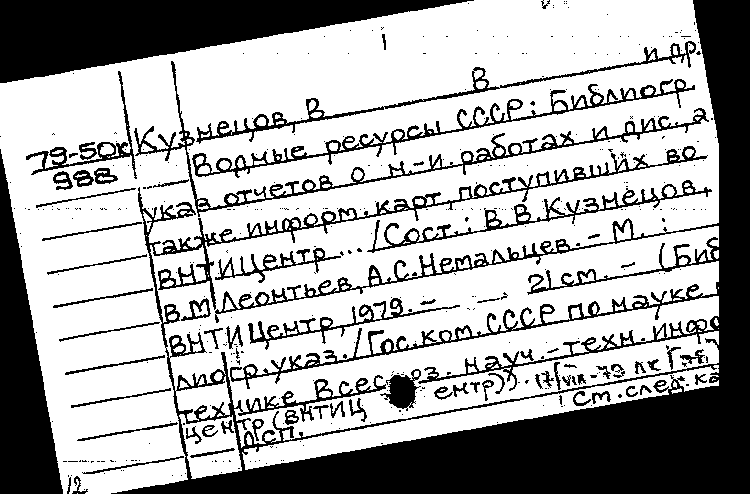 Кузнецов, В В и др.
79-50к
988
Водные ресурсы СССР: Библиогр.
указ. отчетов о н.-и. работах и дис., а
также информ. карт, поступивших во
ВНТИЦентр ... /Сост.: В.В. Кузнецов,
В.М. Леонтьев, А.С. Немальцев. - М. :
ВНТИЦентр, 1979. - 21 см. - (Биб
лиогр. указ. /Гос. ком. СССР по науке
технике. Всесоюз. науч.-техн. инфо
центр (ВНТИЦ ентр)).
ДСП. См. след. ка
12